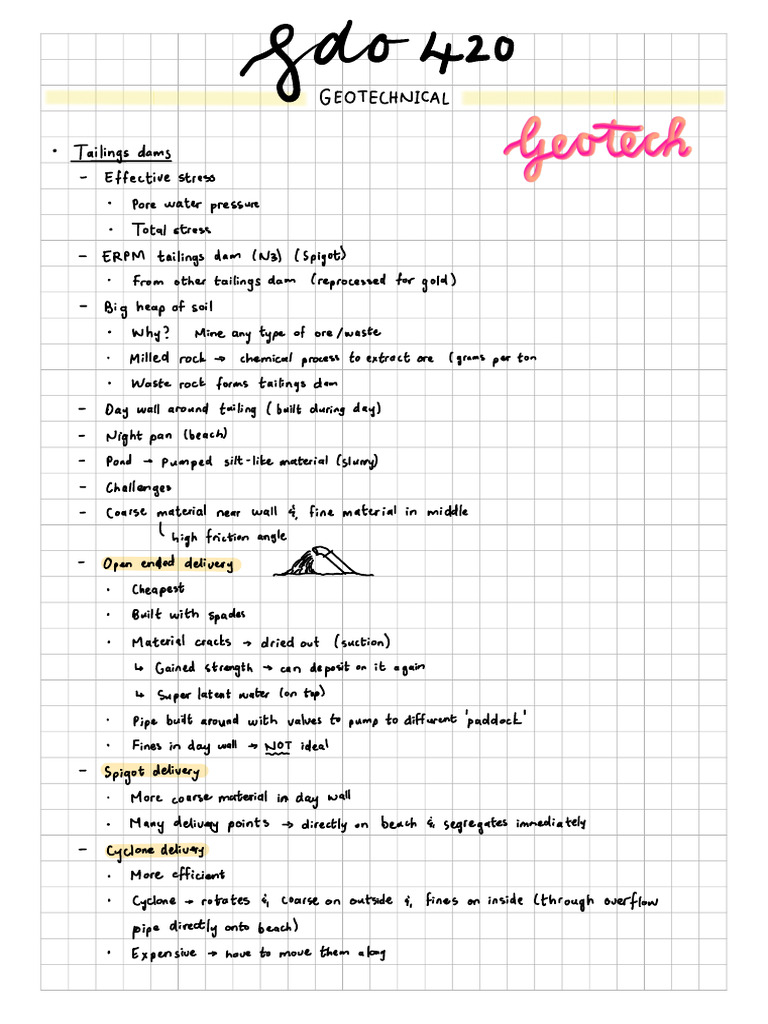 gdo 420
GEOTECHNICAL
Geotech
• Tailings dams
- Effective stress
• Pore water pressure
• Total stress
- ERPM tailings dam (N3) (Spigot)
• From other tailings dam (reprocessed for gold)
- Big heap of soil
• Why? Mine any type of ore/waste
• Milled rock → chemical process to extract ore (grams per ton
• Waste rock forms tailings dam
- Day wall around tailing (built during day)
- Night pan (beach)
- Pond → Pumped silt-like material (slurry)
- Challenges
- Coarse material near wall & fine material in middle
high friction angle
- Open ended delivery
• Cheapest
• Built with spades
• Material cracks → dried out (suction)
↳ Gained strength → can deposit on it again
↳ Super latent water (on top)
• Pipe built around with valves to pump to different 'paddock'
• Fines in day wall → NOT ideal
- Spigot delivery
• More coarse material in day wall
• Many delivery points → directly on beach & segregates immediately
- Cyclone delivery
• More efficient
• Cyclone → rotates & coarse on outside & fines on inside (through overflow
pipe directly onto beach)
• Expensive → have to move them along